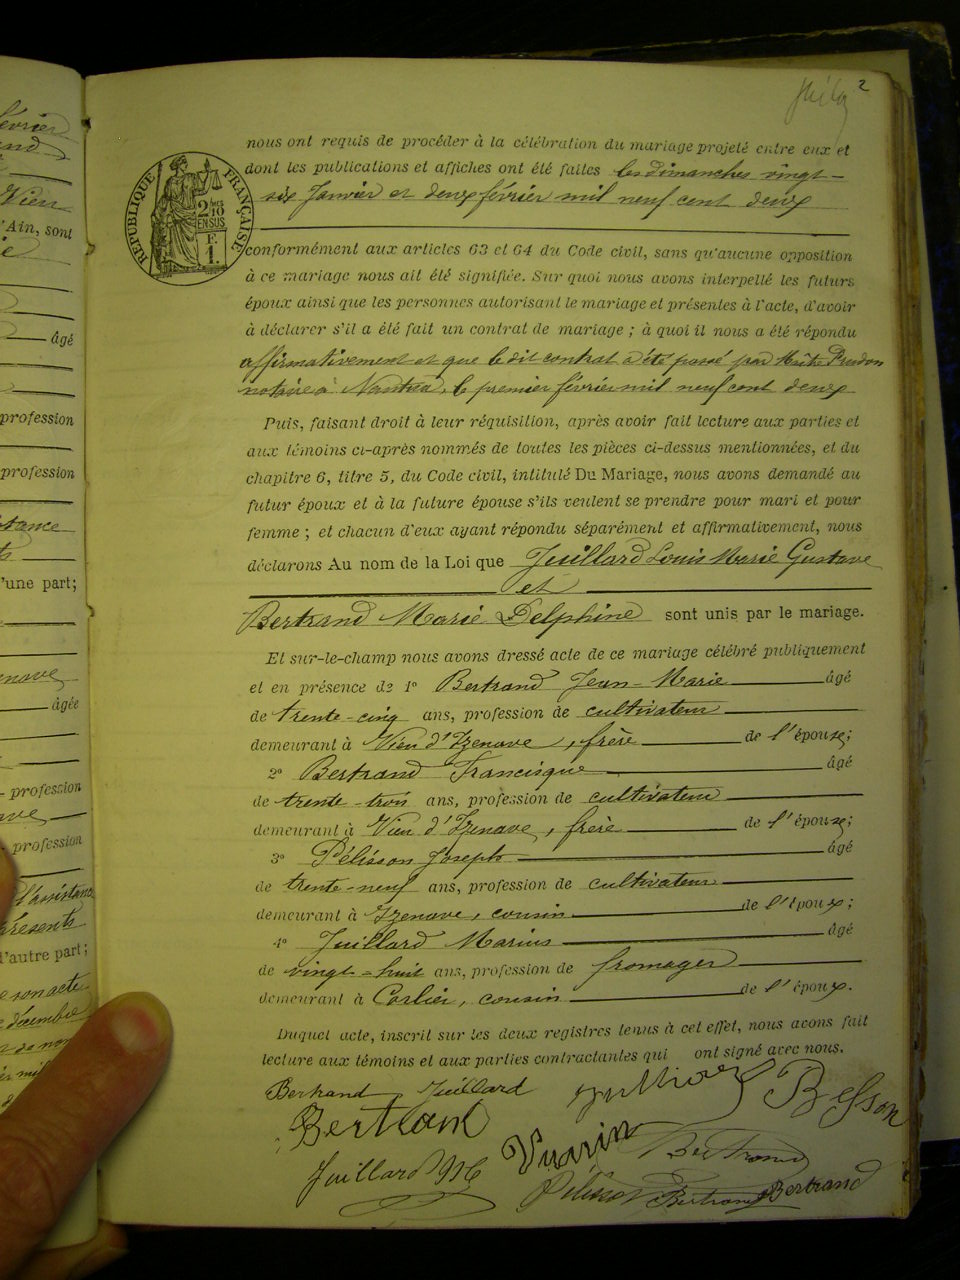 2
nous ont requis de procéder à la célébration du mariage projeté entre eux et
dont les publications et affiches ont été faites les dimanches vingt-
six Janvier et deux février mil neuf cent deux
RÉPUBLIQUE FRANÇAISE
2/10
EN SUS
F.
1.
conformément aux articles 63 et 64 du Code civil, sans qu'aucune opposition
à ce mariage nous ait été signifiée. Sur quoi nous avons interpellé les futurs
époux ainsi que les personnes autorisant le mariage et présentes à l'acte, d'avoir
à déclarer s'il a été fait un contrat de mariage ; à quoi il nous a été répondu
affirmativement et que le dit contrat a été passé par Maître Prudon
notaire à Nantua, le premier février mil neuf cent deux
Puis, faisant droit à leur réquisition, après avoir fait lecture aux parties et
aux témoins ci-après nommés de toutes les pièces ci-dessus mentionnées, et du
chapitre 6, titre 5, du Code civil, intitulé Du Mariage, nous avons demandé au
futur époux et à la future épouse s'ils veulent se prendre pour mari et pour
femme ; et chacun d'eux ayant répondu séparément et affirmativement, nous
déclarons Au nom de la Loi que Juillard Louis Marie Gustave
et
Bertrand Marie Delphine sont unis par le mariage.
Et sur-le-champ nous avons dressé acte de ce mariage célébré publiquement
et en présence de 1° Bertrand Jean-Marie âgé
de trente-cinq ans, profession de cultivateur
demeurant à Vieu d'Izenave, frère de l'épouse;
2° Bertrand Francisque âgé
de trente-trois ans, profession de cultivateur
demeurant à Vieu d'Izenave, frère de l'épouse;
3° Pélisson Joseph âgé
de trente-neuf ans, profession de cultivateur
demeurant à Izenave, cousin de l'époux;
4° Juillard Marius âgé
de vingt-huit ans, profession de fromager
demeurant à Corlier, cousin de l'époux.
Duquel acte, inscrit sur les deux registres tenus à cet effet, nous avons fait
lecture aux témoins et aux parties contractantes qui ont signé avec nous.
Bertrand Juillard Besson
Bertrand
Vuarin Bertrand
Juillard Bertrand Bertrand
février
Vien
l'Ain, sont
âgé
profession
profession
l'une part;
âgée
profession
profession
l'assistance
présents
l'autre part;
décembre